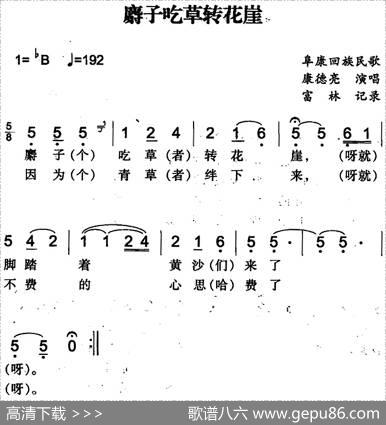 麝子吃草转花崖
1=♭B ♩=192
阜康回族民歌
康德亮 演唱
富林 记录
5/8 5 5 5 | 1 2 4 | 2 1 6 | 5 5 6 1 |
麝子(个) 吃草(者)转花 崖，(呀就)
因为(个) 青草(者)绊下 来，(呀就)
5 4 2 | 1 1 2 4 | 1 2 1 6 | 5 5· | 5 5· |
脚踏 着 黄沙(们)来了
不费 的 心思(哈)费了
5 5 0 :‖
(呀)。
(呀)。
高清下载 >>>
歌谱八六 www.gepu86.com